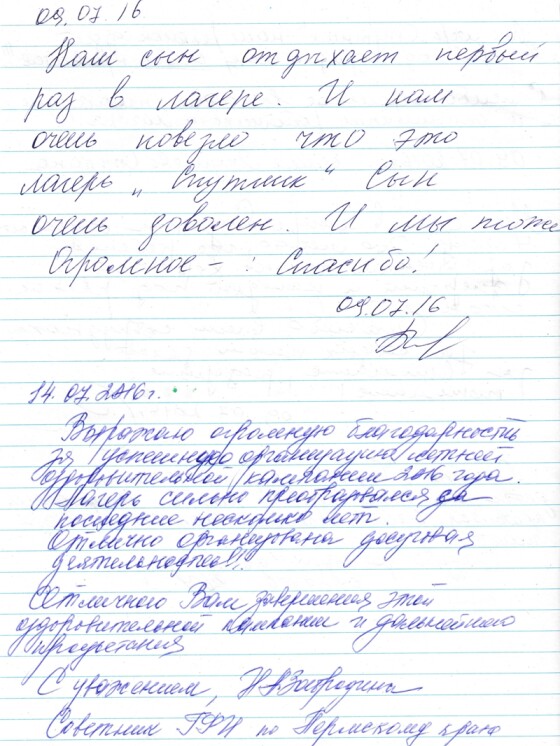 09.07.16
Наш сын отдыхает первый
раз в лагере. И нам
очень повезло что это
лагерь „Спутник“ Сын
очень доволен. И мы тоже
Огромное - : Спасибо!
09.07.16
14.07.2016г.
Выражаю огромную благодарность
за успешную организацию летней
оздоровительной кампании 2016 года.
Лагерь сильно преобразовался за
последние несколько лет.
Отлично организована досуговая
деятельность!
Отличного Вам завершения этой
оздоровительной кампании и дальнейшего
процветания
С уважением,
Советник ГФИ по Пермскому краю